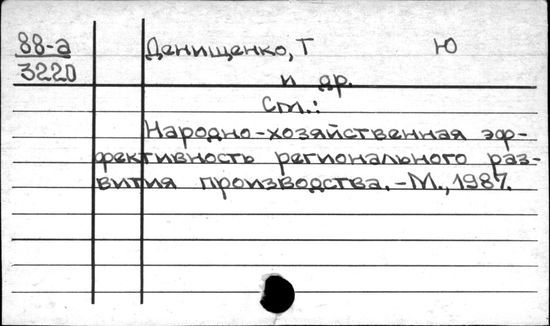 88-а Денищенко, Т Ю
3220
и др.
См.:
Народно-хозяйственная эф-
фективность регионального раз-
вития производства.-М., 1987.